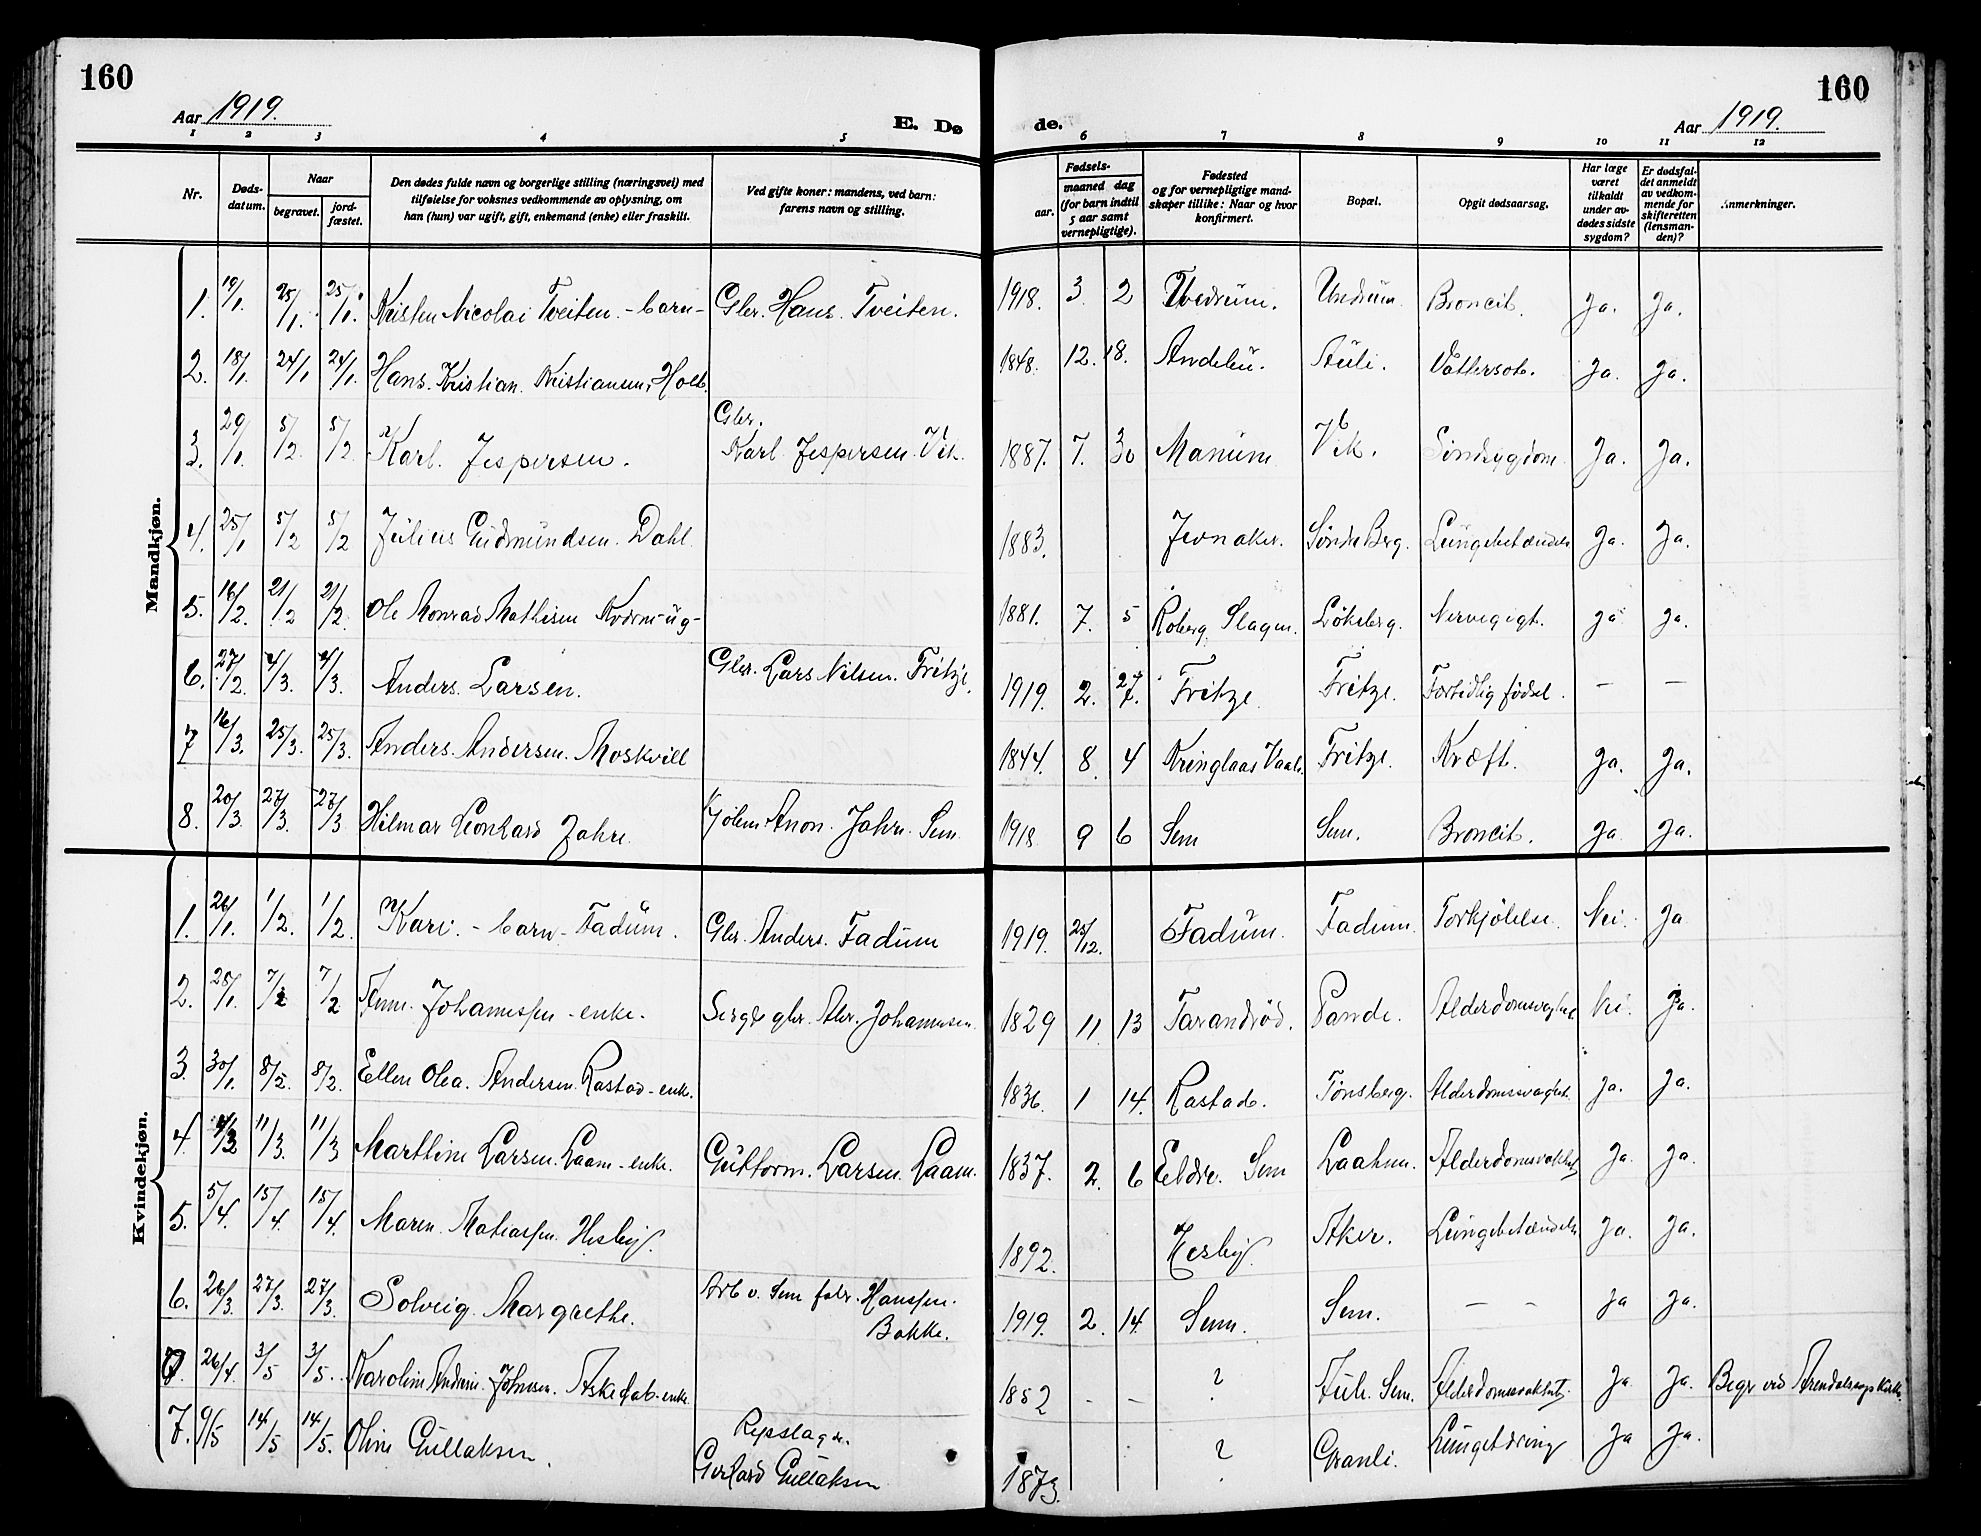 160
160
Aar 1919.
E. Dø
de.
Aar 1919.
1 2 3 4 5 6 7 8 9 10 11 12
Nr.
Døds-
datum.
Naar
begravet.
jord-
fæstet.
Den dødes fulde navn og borgerlige stilling (næringsvei) med
tilføielse for voksnes vedkommende av oplysning, om
han (hun) var ugift, gift, enkemand (enke) eller fraskilt.
Ved gifte koner: mandens, ved barn:
farens navn og stilling.
Fødsels-
aar.
maaned dag
(for barn indtil
5 aar samt
vernepligtige).
Fødested
og for vernepligtige mand-
skaper tillike: Naar og hvor
konfirmert.
Bopæl.
Opgit dødsaarsag.
Har læge
været
tilkaldt
under av-
dødes sidste
sygdom?
Er dødsfal-
det anmeldt
av vedkom-
mende for
skifteretten
(lensman-
den)?
Anmerkninger.
Mandkjøn.
1. 19/1. 25/1. 25/1. Kristen Nicolai Tveiten. - barn - Gbr. Hans. Tveiten. 1918. 3. 2 Undrum. Undrum Broncit. Ja. Ja.
2. 18/1. 24/1 24/1. Hans. Kristian. Kristiansen, Holt. 1848. 12. 18. Andebu. Auli. Vattersot. Ja. Ja.
3. 29/1. 5/2. 5/2. Karl. Jespersen. Gbr. Karl Jespersen. Vik. 1887. 7. 30 Manum Vik. Sindsygdom. Ja. Ja.
4. 25/1 5/2 5/2 Julius Gudmundsen. Dahl. 1883. Jevnaker. Søndre Berg. Lungebetændelse Ja. Ja.
5. 16/2. 21/2 21/2. Ole Konrad Mathisen - ug - 1881. 7. 5 Roberg. Slagen. Løksberg. Nervegigt. Ja Ja.
6. 27/2. 4/3. 4/3. Anders. Larsen. Gbr. Lars Nilsen. Fritze. 1919. 2. 27. Fritze. Fritze. Fortidlig fødsel. — —
7 16/3. 25/3. 25/3. Anders. Andersen. Moskvill 1844. 8. 4 Kringlaas Vaale. Fritze. Kræft. Ja. Ja.
8. 20/3. 27/3. 27/3 Hilmar Leonhard Jahre. Anon. Jahre. Sem. 1918 9 6 Sem Sem. Broncit. Ja. Ja.
Kvindekjøn.
1. 26/1. 1/2. 1/2. Kari. - barn - Fadum. Gbr. Anders. Fadum 1919. 25/12. Fadum. Fadum. Forkjølelse. Nei. Ja
2. 28/1. 7/2 7/2 Anne. Johannessen - enke. gbr. Abr. Johannesen. 1829 11 13 Tarandrød. Pande. Alderdomsvaghet Nei. Ja.
3. 30/1. 8/2. 8/2. Ellen Olea. Andersen. Rastad - enke. 1836. 1 14. Rastad. Tønsberg. Alderdomssvaghet. Ja. Ja.
4. 4/3 11/3. 11/3 Marthine Larsen. Laam - enke. Guttorm. Larsen. Laam. 1837. 2. 6 Sem Alderdomsvakhet Ja. Ja.
5. 5/4. 15/4. 15/4. Maren. Matiassen. Hesby. 1892. Hesby. Aker. Lungebetændelse Ja. Ja.
6. 26/3. 27/3. 27/3. Solveig. Margrethe. Arb v. Sem fabr. Hanssen. Bakke. 1919. 2. 14. Sem. Sem. — - Ja Ja.
7. 26/4 3/5 3/5. Karoline Andrine. Johnsen. - enke. 1852 - — ? Sem. Alderdomsvakhet. Ja Ja. Begr ved Arendals
7. 9/5 14/5 14/5. Oline Gullaksen. Repslager. Gerhard Gullaksen 1873. ? Granli. Lungetæring Ja Ja.